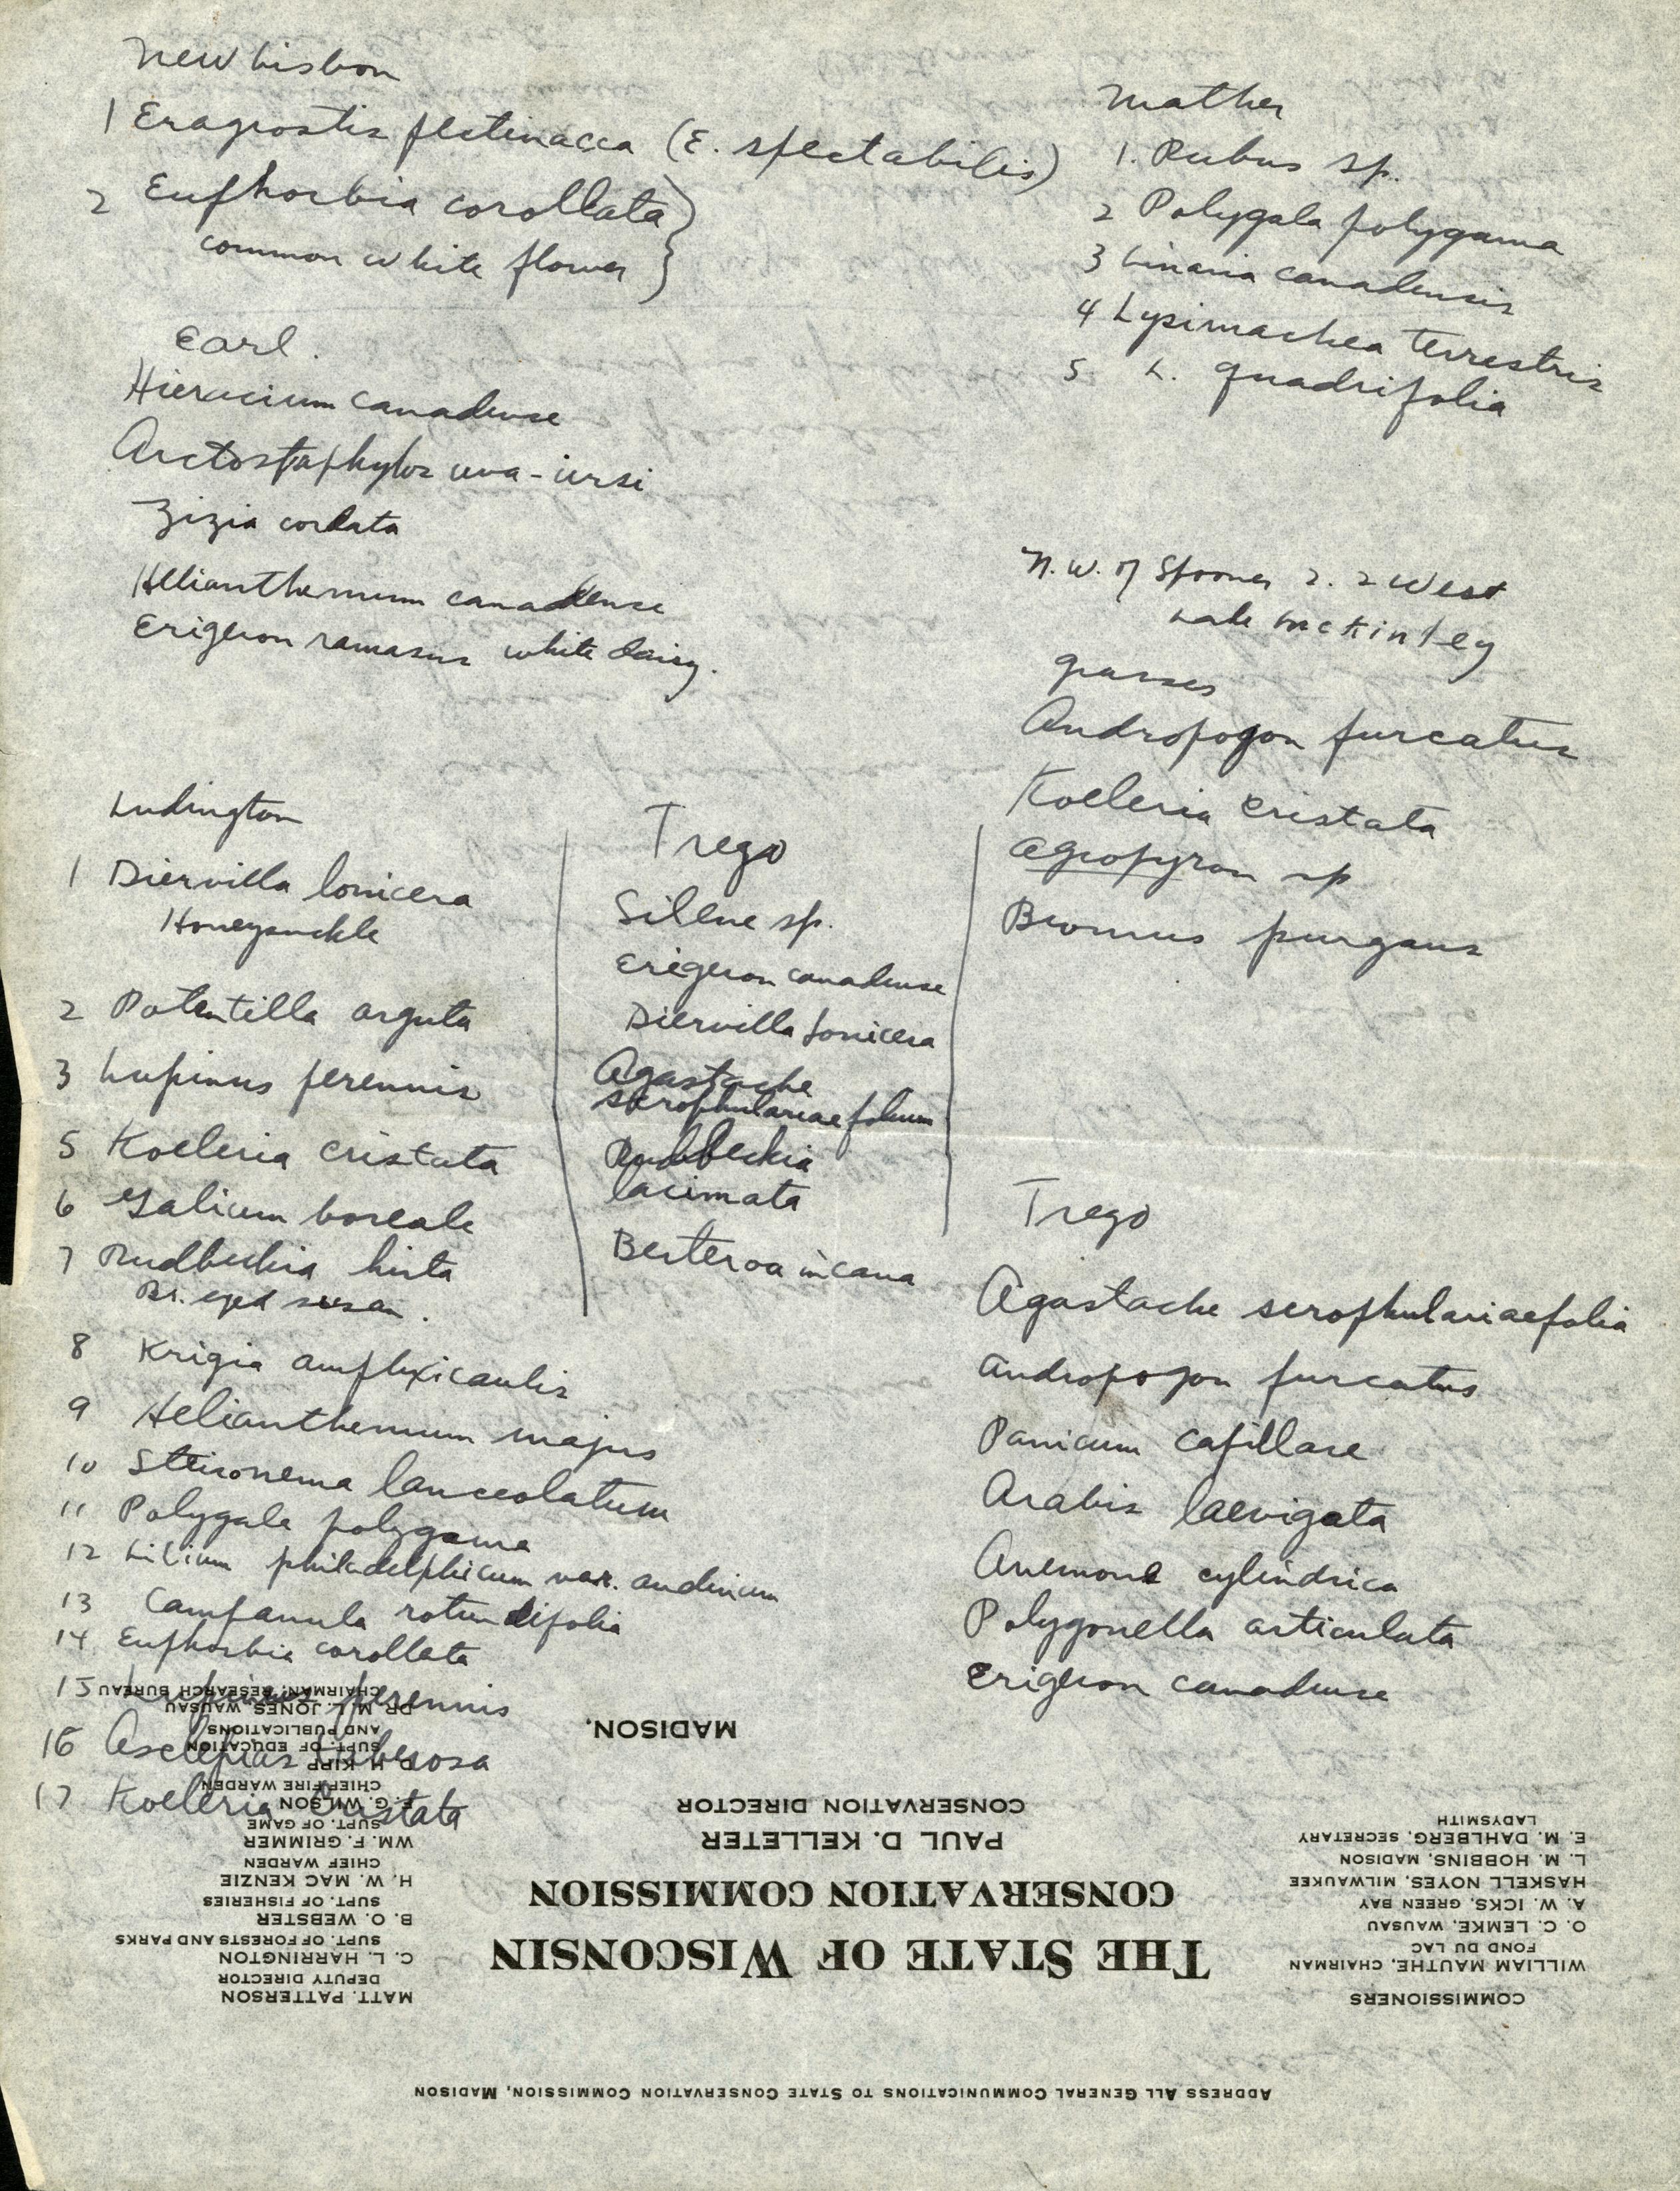 New Lisbon
1 Eragrostis pectinacea (E. spectabilis)
2 Euphorbia corollata
common white flower
Earl.
Hieracium canadense
Arctostaphylos uva-ursi
Zizia cordata
Helianthemum canadense
Erigeron ramasus white daisy.
Mather
1. Rubus sp.
2 Polygala polygama
3 Linaria canadensis
4 Lysimachea terrestris
5 L. quadrifolia
N.W. of Spooner 2. 2 West
Lake McKinley
grasses
Andropogon furcatus
Koeleria cristata
Agropyron sp
Bromus purgans
Ludington
1 Diervilla lonicera
Honeysuckle
2 Potentilla arguta
3 Lupinus perennis
5 Koeleria cristata
6 Galium boreale
7 Rudbeckia hirta
Bl. eyed susan.
8 Krigia amplexicaulis
9 Helianthemum majus
10 Steironema lanceolatum
11 Polygala polygama
12 Lilium philadelphicum var. andinum
13 Campanula rotundifolia
14 Euphorbia corollata
15 Lupinus perennis
16 Asclepias tuberosa
17 Koeleria cristata
Trego
Silene sp.
Erigeron canadense
Diervilla lonicera
Agastache
scrophulariaefolium
Rudbeckia
lacimata
Berteroa incana
Trego
Agastache scrophulariaefolia
Andropogon furcatus
Panicum capillare
Arabis laevigata
Anemone cylindrica
Polygonella articulata
Erigeron canadense
ADDRESS ALL GENERAL COMMUNICATIONS TO STATE CONSERVATION COMMISSION, MADISON
COMMISSIONERS
WILLIAM MAUTHE, CHAIRMAN
FOND DU LAC
O. C. LEMKE, WAUSAU
A. W. ICKS, GREEN BAY
HASKELL NOYES, MILWAUKEE
L. M. HOBBINS, MADISON
E. M. DAHLBERG, SECRETARY
LADYSMITH
THE STATE OF WISCONSIN
CONSERVATION COMMISSION
PAUL D. KELLETER
CONSERVATION DIRECTOR
MADISON.
MATT. PATTERSON
DEPUTY DIRECTOR
C. L. HARRINGTON
SUPT. OF FORESTS AND PARKS
B. O. WEBSTER
SUPT. OF FISHERIES
H. W. MAC KENZIE
CHIEF WARDEN
WM. F. GRIMMER
SUPT. OF GAME
F. G. WILSON
CHIEF FIRE WARDEN
D. H. KIPP
SUPT. OF EDUCATION
AND PUBLICATIONS
DR. M. L. JONES, WAUSAU
CHAIRMAN, RESEARCH BUREAU